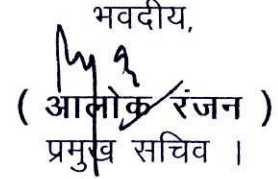 भवदीय,
( आलोक रंजन )
प्रमुख सचिव ।